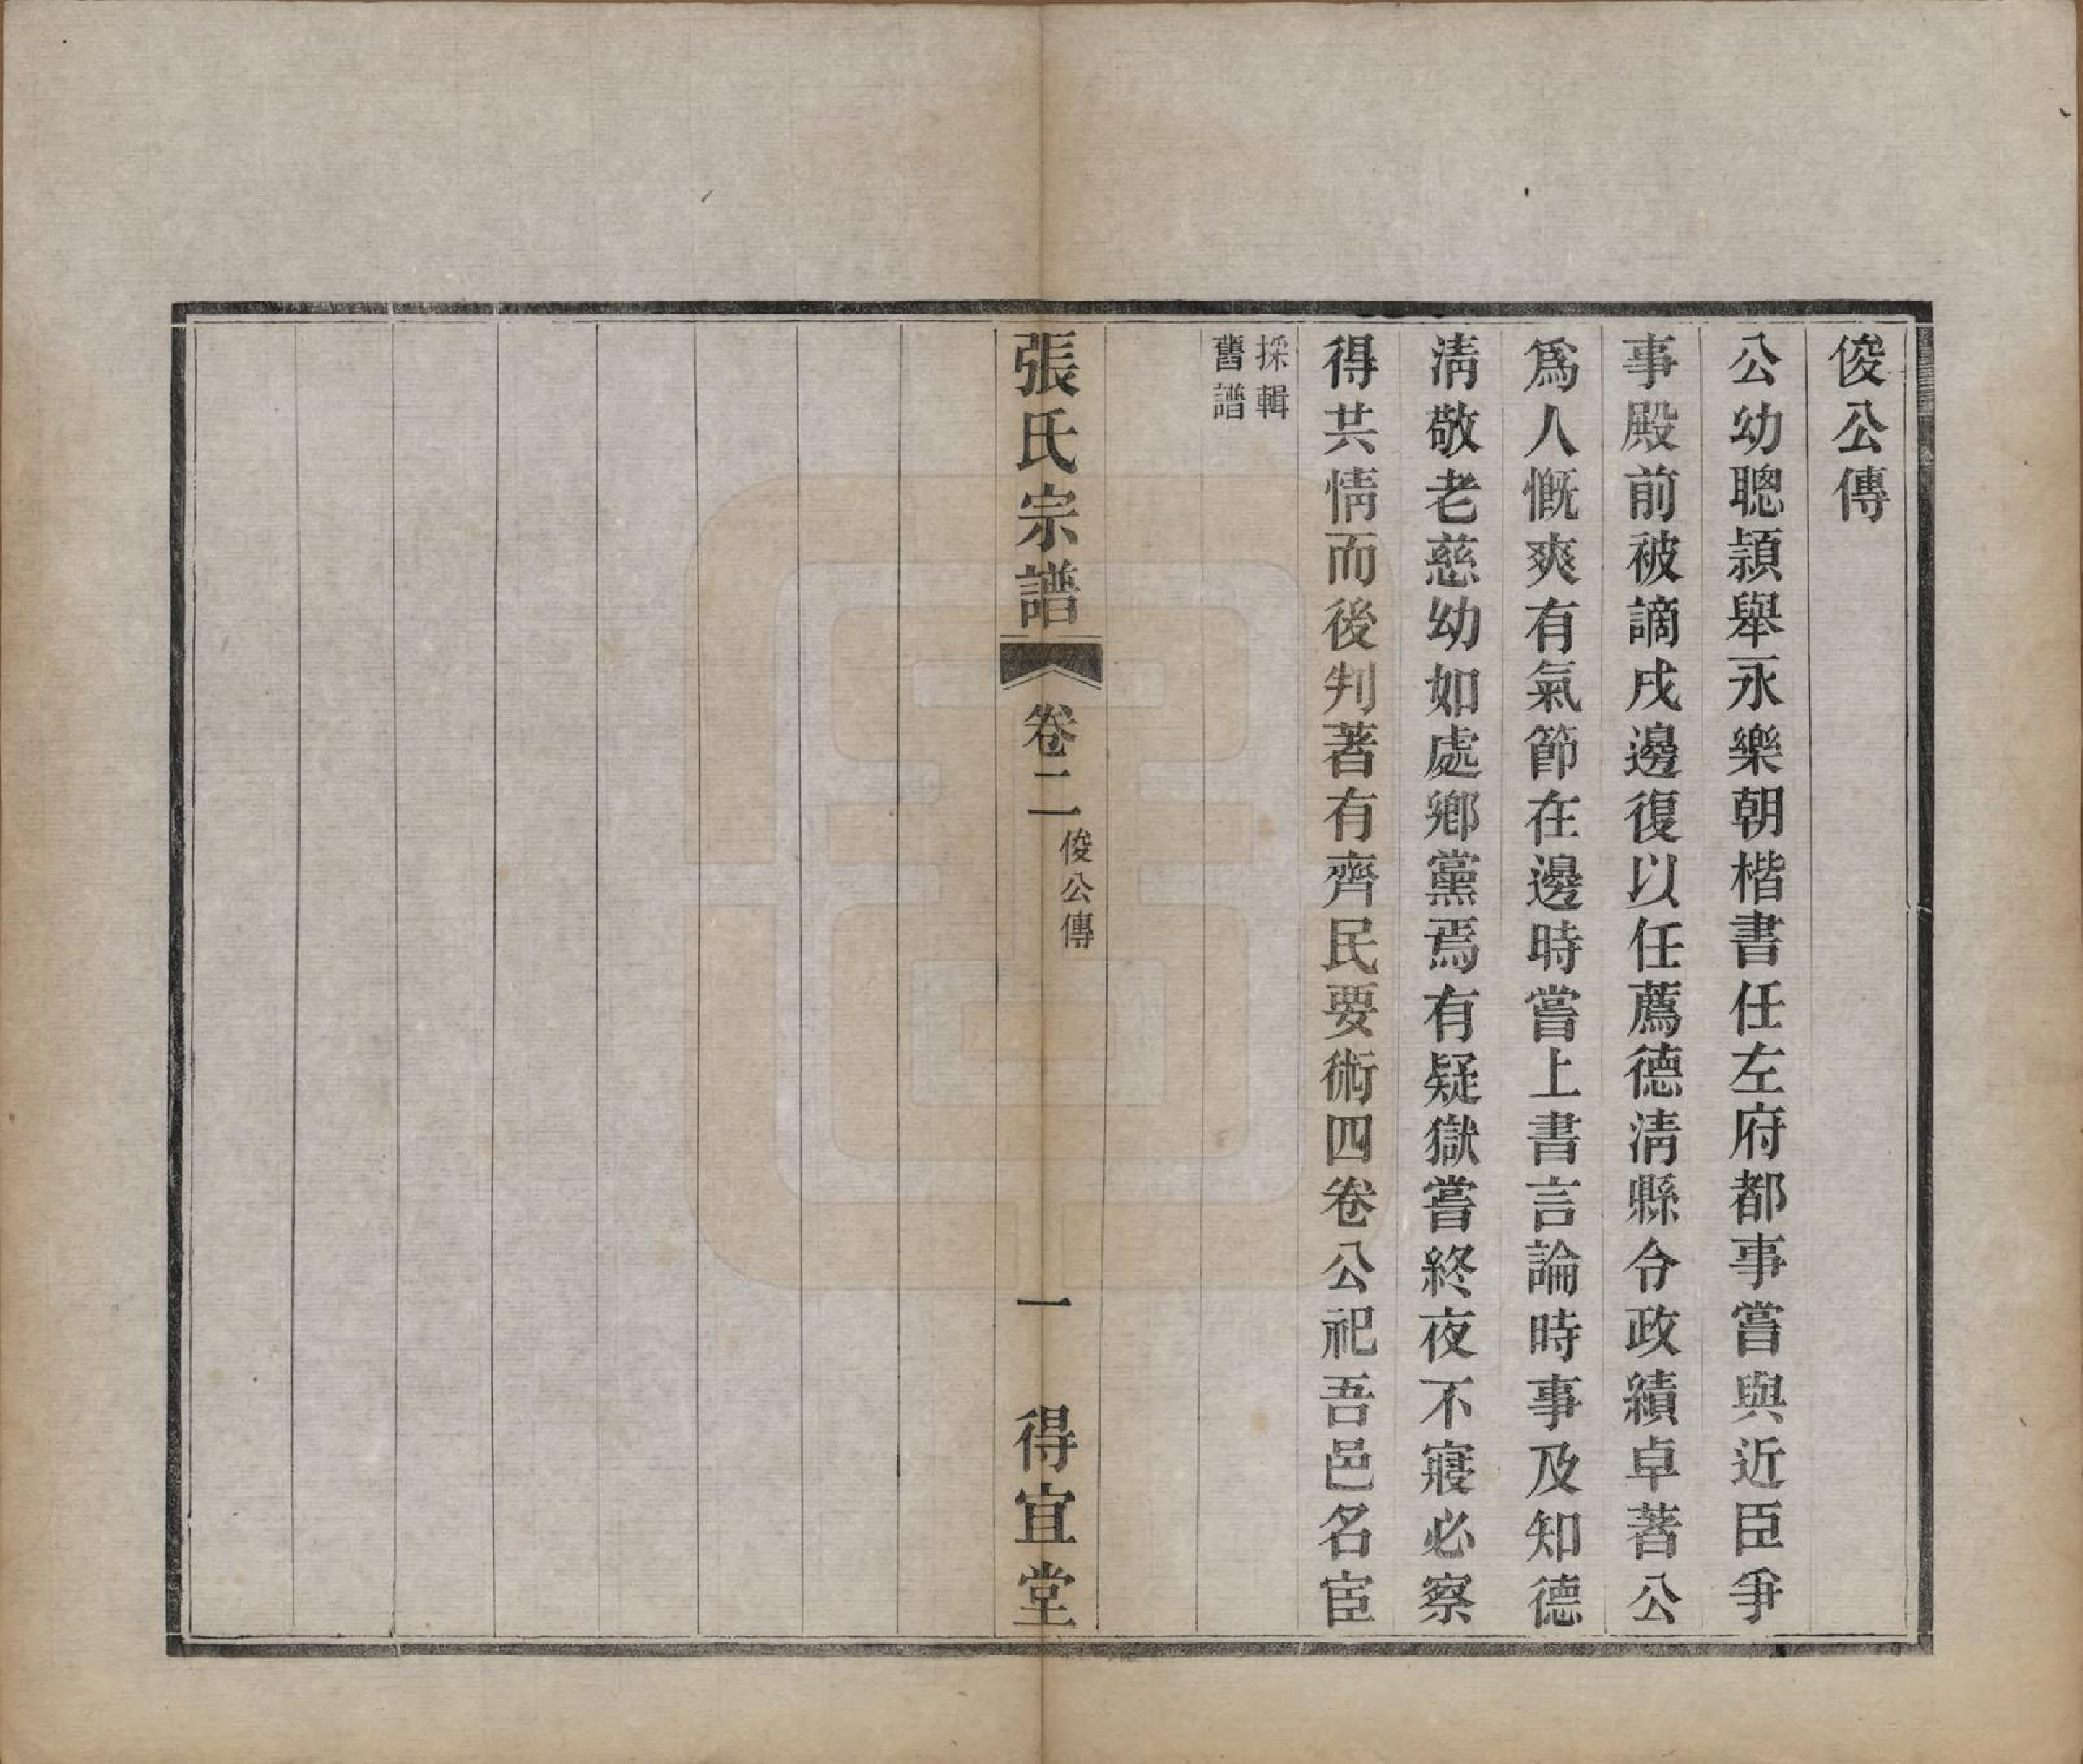 俊公傳
公幼聰頴舉永樂朝楷書任左府都事嘗與近臣爭
事殿前被謫戍邊復以任薦德淸縣令政績卓著公
爲人慨爽有氣節在邊時嘗上書言論時事及知德
淸敬老慈幼如處鄕黨焉有疑獄嘗終夜不寢必察
得其情而後判著有齊民要術四卷公祀吾邑名宦
採輯
舊譜
張氏宗譜 卷二 俊公傳 一 得宜堂